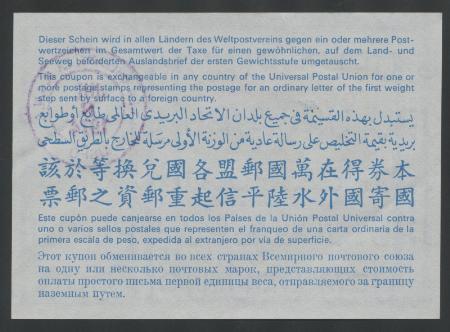 Dieser Schein wird in allen Ländern des Weltpostvereins gegen ein oder mehrere Post-
wertzeichen im Gesamtwert der Taxe für einen gewöhnlichen, auf dem Land- und
Seeweg beförderten Auslandsbrief der ersten Gewichtsstufe umgetauscht.
This coupon is exchangeable in any country of the Universal Postal Union for one or
more postage stamps representing the postage for an ordinary letter of the first weight
step sent by surface to a foreign country.
يستبدل بهذه القسيمة فى جميع بلدان الاتحاد البريدى العالمى طابع أو طوابع
بريدية بقيمة التخليص على رسالة عادية من الوزنة الأولى مرسلة للخارج بالطريق السطحى
該於換等兌國各盟郵國萬在得券本
票郵之資郵重起信平陸水外國寄國
Este cupón puede canjearse en todos los Países de la Unión Postal Universal contra
uno o varios sellos postales que representen el franqueo de una carta ordinaria de la
primera escala de peso, expedida al extranjero por vía de superficie.
Этот купон обменивается во всех странах Всемирного почтового союза
на одну или несколько почтовых марок, представляющих стоимость
оплаты простого письма первой единицы веса, отправляемого за границу
наземным путем.